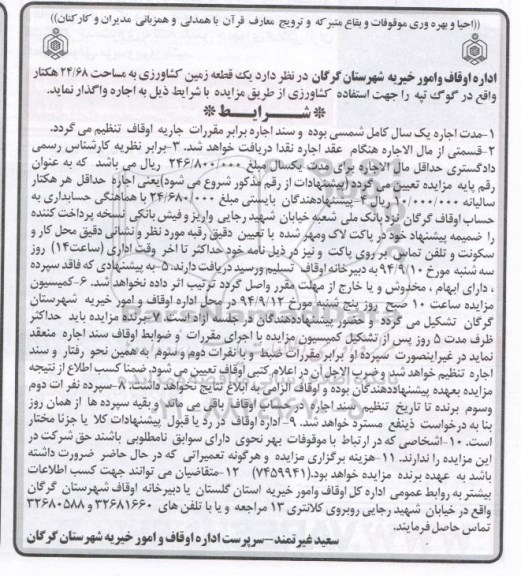 ((احیا و بهره وری موقوفات و بقاع متبرکه و ترویج معارف قرآن با همدلی و همزبانی مدیران و کارکنان))
اداره اوقاف وامور خیریه شهرستان گرگان در نظر دارد یک قطعه زمین کشاورزی به مساحت ۲۴/۶۸ هکتار
واقع در گوگ تپه را جهت استفاده کشاورزی از طریق مزایده با شرایط ذیل به اجاره واگذار نماید.
* شـــرایـــط *
۱-مدت اجاره یک سال کامل شمسی بوده و سند اجاره برابر مقررات جاریه اوقاف تنظیم می گردد.
۲-قسمتی از مال الاجاره هنگام عقد اجاره نقدا دریافت خواهد شد. ۳-برابر نظریه کارشناس رسمی
دادگستری حداقل مال الاجاره برای مدت یکسال مبلغ ۲۴۶/۸۰۰/۰۰۰ ریال می باشد که به عنوان
رقم پایه مزایده تعیین می گردد (پیشنهادات از رقم مذکور شروع می شود)یعنی اجاره حداقل هر هکتار
سالیانه ۱۰/۰۰۰/۰۰۰ ریال ۴-پیشنهاددهندگان بایستی مبلغ ۲۴/۶۸۰/۰۰۰ با هماهنگی حسابداری به
حساب اوقاف گرگان نزد بانک ملی شعبه خیابان شهید رجایی واریز و فیش بانکی نسخه پرداخت کننده
را ضمیمه پیشنهاد خود در پاکت لاک ومهر شده با تعیین دقیق رقبه مورد نظر و نشانی دقیق محل کار و
سکونت و تلفن تماس بر روی پاکت و نیز در ذیل نامه خود حداکثر تا اخر وقت اداری (ساعت۱۴) روز
سه شنبه مورخ ۹۴/۹/۱۰ به دبیرخانه اوقاف تسلیم ورسید دریافت دارند. ۵-به پیشنهادی که فاقد سپرده
، دارای ابهام ، مخدوش و یا خارج از مهلت مقرر واصل گردد ترتیب اثر داده نخواهد شد. ۶-کمیسیون
مزایده ساعت ۱۰ صبح روز پنج شنبه مورخ ۹۴/۹/۱۲ در محل اداره اوقاف و امور خیریه شهرستان
گرگان تشکیل می گردد و حضور پیشنهاددهندگان در جلسه آزاد است. ۷-برنده مزایده باید حداکثر
ظرف مدت ۵ روز پس از تشکیل کمیسیون مزایده با اجرای مقررات و ضوابط اوقاف سند اجاره منعقد
نماید در غیراینصورت سپرده او برابر مقررات ضبط و با نفرات دوم و سوم به همین نحو رفتار و سند
اجاره تنظیم خواهد شد و ضرب الاجل آن در اعلام کتبی اوقاف تعیین می شود. ضمنا کسب اطلاع از نتیجه
مزایده بعهده پیشنهاددهندگان بوده و اوقاف الزامی به ابلاغ نتایج نخواهد داشت. ۸-سپرده نفرات دوم
وسوم برنده تا تاریخ تنظیم سند اجاره در حساب اوقاف باقی می ماند و بقیه سپرده ها از همان روز
بنا به درخواست ذینفع مسترد خواهد شد. ۹-اداره اوقاف در رد یا قبول پیشنهادات کلا یا جزئا مختار
است. ۱۰-اشخاصی که در ارتباط با موقوفات بهر نحوی دارای سوابق نامطلوبی باشند حق شرکت در
این مزایده را ندارند. ۱۱-هزینه برگزاری مزایده و هرگونه تعمیراتی که در حال حاضر ضرورت داشته
باشد به عهده برنده مزایده خواهد بود.(۷۴۵۹۹۴۱) ۱۲-متقاضیان می توانند جهت کسب اطلاعات
بیشتر به روابط عمومی اداره کل اوقاف وامور خیریه استان گلستان یا دبیرخانه اوقاف شهرستان گرگان
واقع در خیابان شهید رجایی روبروی کلانتری ۱۳ مراجعه و یا با تلفن های ۳۲۶۸۱۶۶۰ و ۳۲۶۸۰۵۸۸
تماس حاصل فرمایند.
سعید غیرتمند-سرپرست اداره اوقاف و امور خیریه شهرستان گرگان